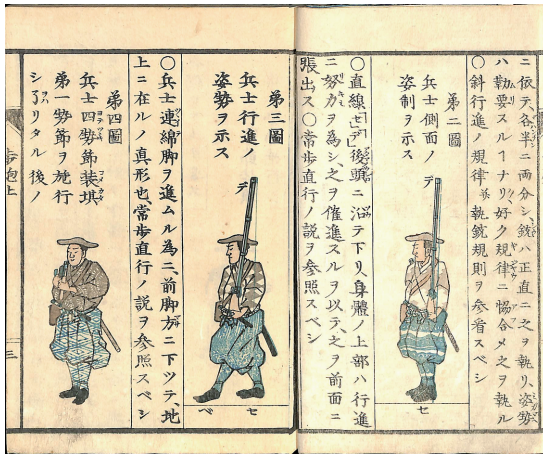 ニ依テ、各半ニ両分シ、銃ハ正直ニ之ヲ執リ、姿勢
ハ勤要スルーナリ、好ク規律ニ協合メ之ヲ執ル
〇斜行進ノ規律並執銃規則ヲ参看スベシ
第二圖
兵士側面ノ
姿制ヲ示ス
デ
セ
〇直線「セデ」後頭ニ沿テ下リ、身體ノ上部ハ行進
ニ努力ヲ為シ、之ヲ催進スルヲ以テ、之ヲ前面ニ
張出ス〇常歩直行ノ説ヲ参照スベシ
第三圖
兵士行進ノ
姿勢ヲ示ス
デ
セ
ベ
〇兵士連綿脚ヲ進ムル為ニ、前脚方ニ下ツテ、地
上ニ在ルノ真形也、常歩直行ノ説ヲ参照スベシ
第四圖
兵士四勢節装填
第一勢節ヲ施行
シ了リタル後ノ
三